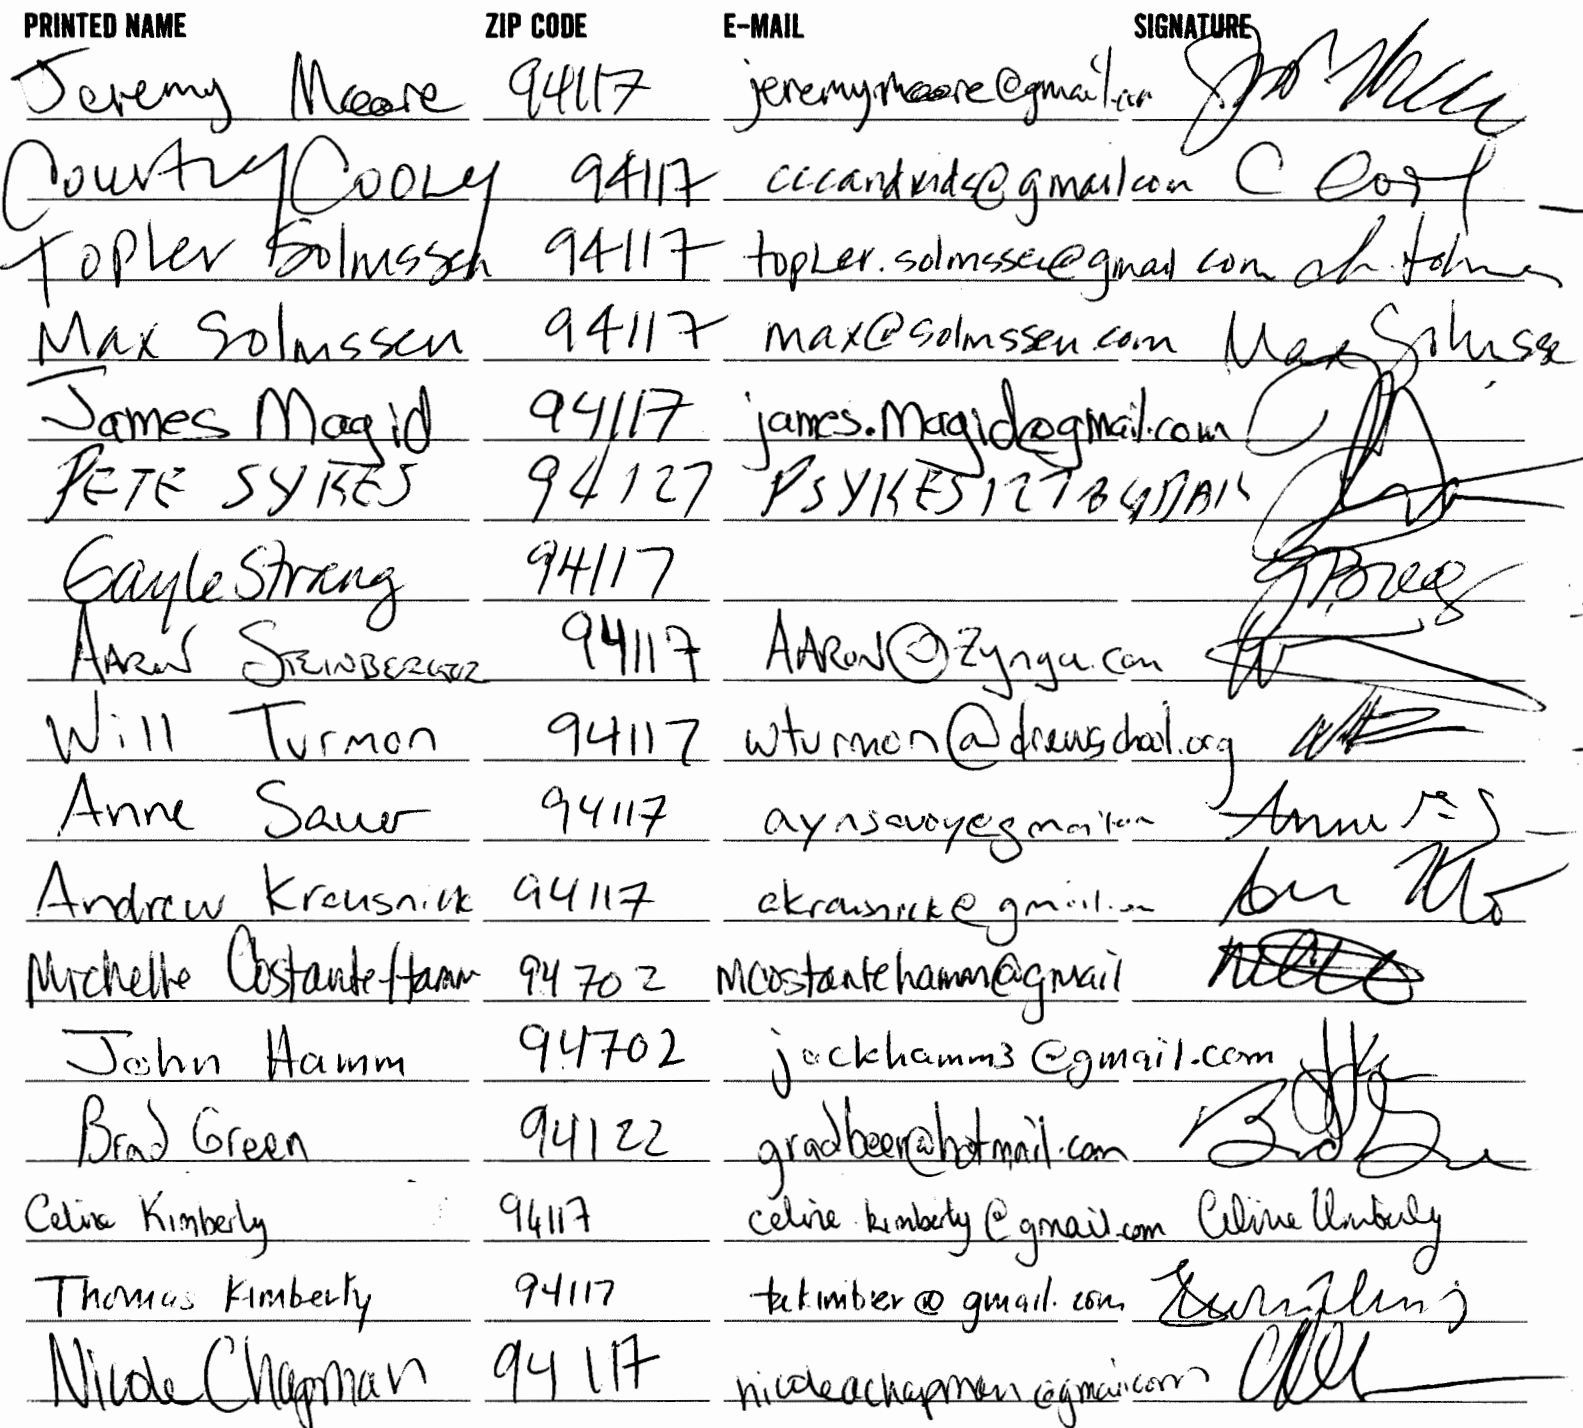 PRINTED NAME ZIP CODE E-MAIL SIGNATURE
Jeremy Moore 94117 jeremymoore@gmail.com
Courtney Cooly 94117 cccandkids@gmail.com
Topler Solmssen 94117 topler.solmssen@gmail com
Max Solmssen 94117 max@solmssen.com Max Solmssen
James Magid 94117 james.Magid@gmail.com
PETE SYKES 94127 PSYKES127@GMAIL
Gayle Strang 94117
AARON STEINBERGER 94117 AARON@Zynga.com
Will Turmon 94117 wturmon@drewschool.org
Anne Sauer 94117 aynsavoy@gmail.com
Andrew Krausnick 94117 akrausnick@gmail.com
Michelle Costante-Hamm 94702 Mcostantehamm@gmail
John Hamm 94702 jackhamm3@gmail.com
Brad Green 94122 gradbeen@hotmail.com
Celine Kimberly 94117 celine.kimberly@gmail.com Celine Kimberly
Thomas Kimberly 94117 takimber@gmail.com
Nicole Chapman 94117 nicoleachapman@gmail.com